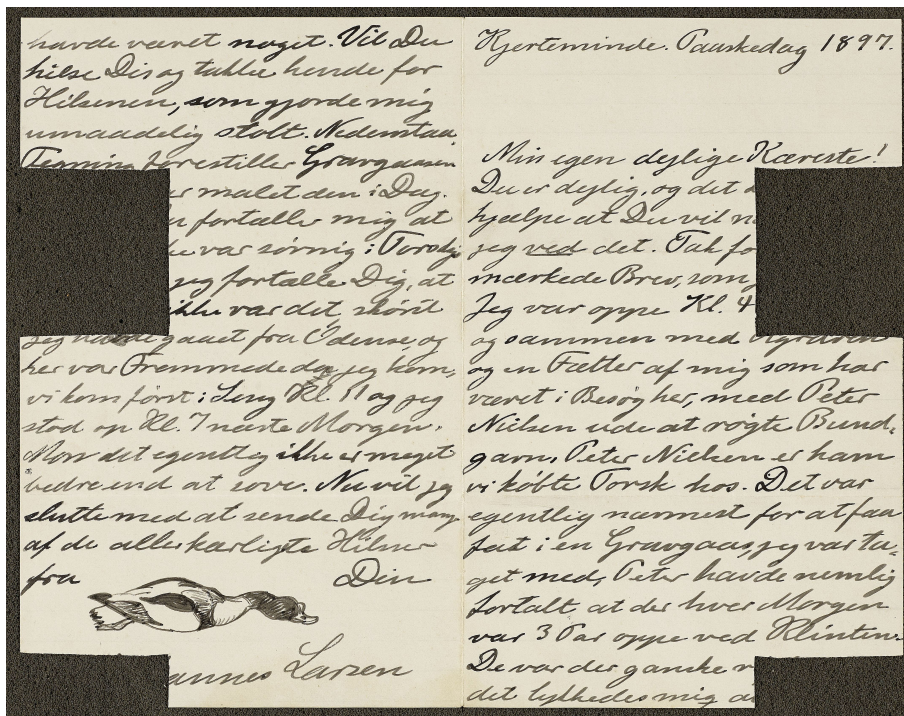 havde været noget. Vil Du
hilse Dis og takke hende for
Hilsenen, som gjorde mig
umaadelig stolt. Nedenstaa
Tegning forestiller Gravgaasen
malet den i Dag.
fortalle mig at
var sørnig i Torsdags
jeg fortælle Dig, at
ikke var det skönt
jeg havde gaaet fra Odense, og
her var Fremmede da jeg kom,
vi kom först i Seng Kl. 11 og jeg
stod op Kl. 7 næste Morgen.
Mon det egentlig ikke er meget
bedre end at sove. Nu vil jeg
slutte med at sende Dig mange
af de allerkærligste Hilsner
fra Din
annes Larsen
Kjerteminde. Paaskedag 1897.
Min egen dejlige Kæreste!
Du er dejlig, og det
hjælpe at Du vil
jeg ved det. Tak fo
mærkede Brev, som
Jeg var oppe Kl. 4
og sammen med Agraren
og en Fætter af mig som har
været i Besøg her, med Peter
Nielsen ude at røgte Bund-
garn, Peter Nielsen er ham
vi købte Torsk hos. Det var
egentlig nærmest for at faa
fat i en Gravgaas, jeg var ta-
get med, Peter havde nemlig
fortalt at der hver Morgen
var 3 Par oppe ved Klinten.
De var der ganske
det lykkedes mig